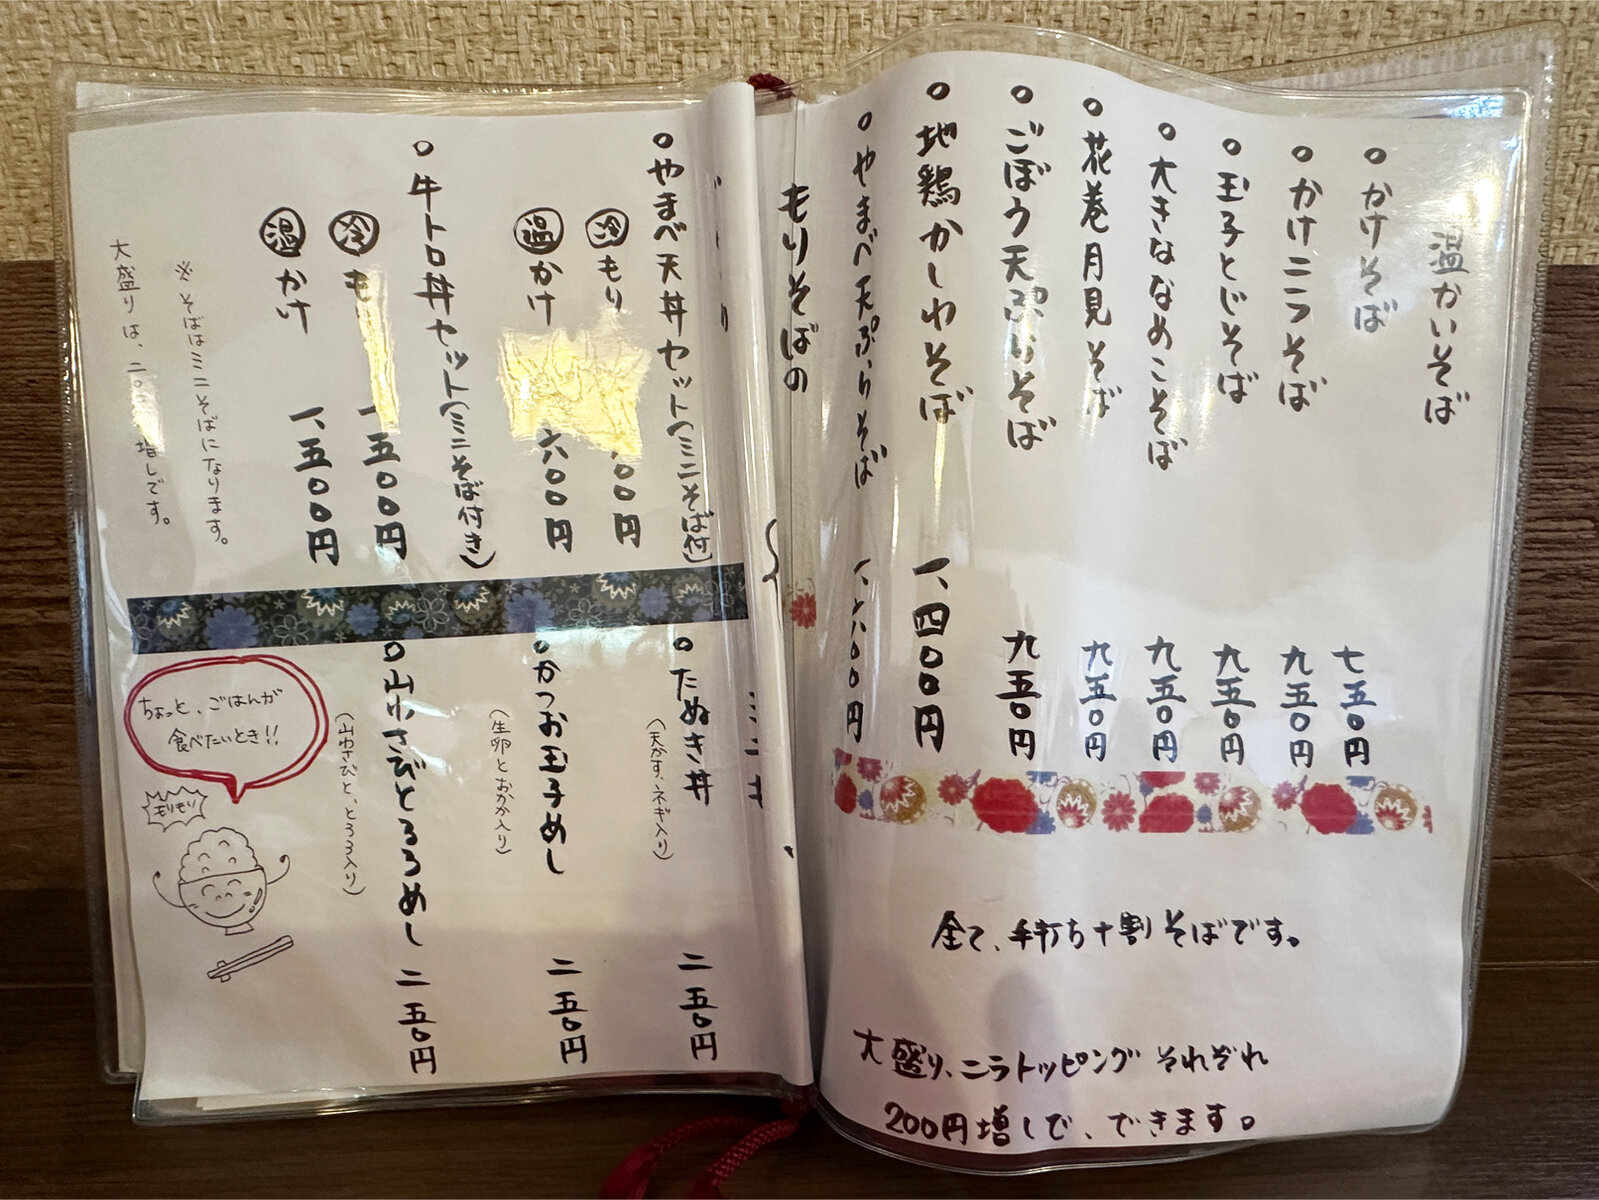 温かいそば
○かけそば 七五〇円
○かけニラそば 九五〇円
○玉子とじそば 九五〇円
○大きななめこそば 九五〇円
○花巻月見そば 九五〇円
○ごぼう天ぷらそば 九五〇円
○地鶏かしわそば 一、四〇〇円
○やまべ天ぷらそば
全て、手打ち十割そばです。
大盛り、ニラトッピングそれぞれ
200円増しで、できます。
もりそばの
○やまべ天丼セット(ミニそば付)
冷 もり 〇〇円
温 かけ 六〇〇円
○牛トロ丼セット(ミニそば付き)
冷 も 一、五〇〇円
温 かけ 一、五〇〇円
※そばはミニそばになります。
大盛りは、二〇 増しです。
○たぬき丼 二五〇円
(天かす、ネギ入り)
○かつお玉子めし 二五〇円
(生卵とおかか入り)
○山わさびとろろめし 二五〇円
(山わさびと、とろろ入り)
ちょっと、ごはんが
食べたいとき!!
モリモリ